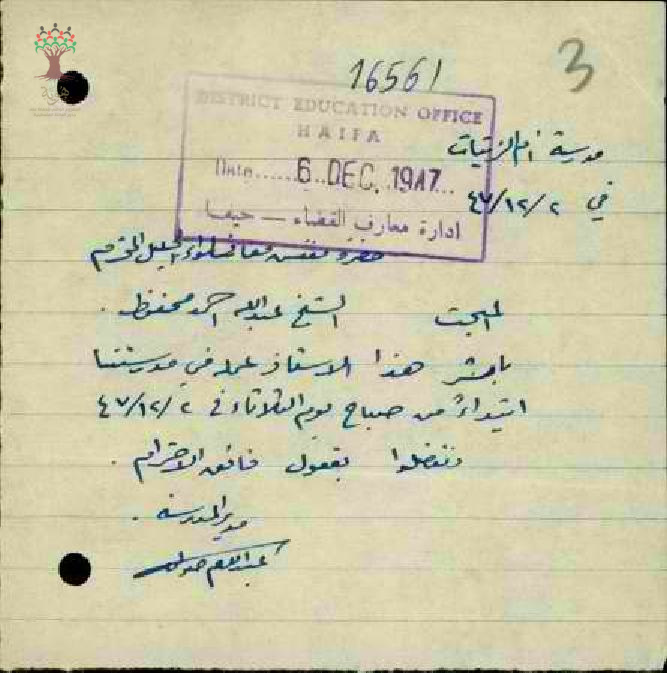 16561
3
DISTRICT EDUCATION OFFICE
HAIFA
Date...... 6 DEC. 1947...
ادارة معارف القضاء — حيفا
مدرسة ام الزينات
في ٤٧/١٢/٢
حضرة مفتش معارف لواء الجليل المحترم
المبحث الشيخ عبدالله احمد محفوظ .
باشر هذا الاستاذ عمله في مدرستنا
ابتداءً من صباح يوم الثلاثاء في ٤٧/١٢/٢
وتفضلوا بقبول فائق الاحترام .
مدير المدرسة .